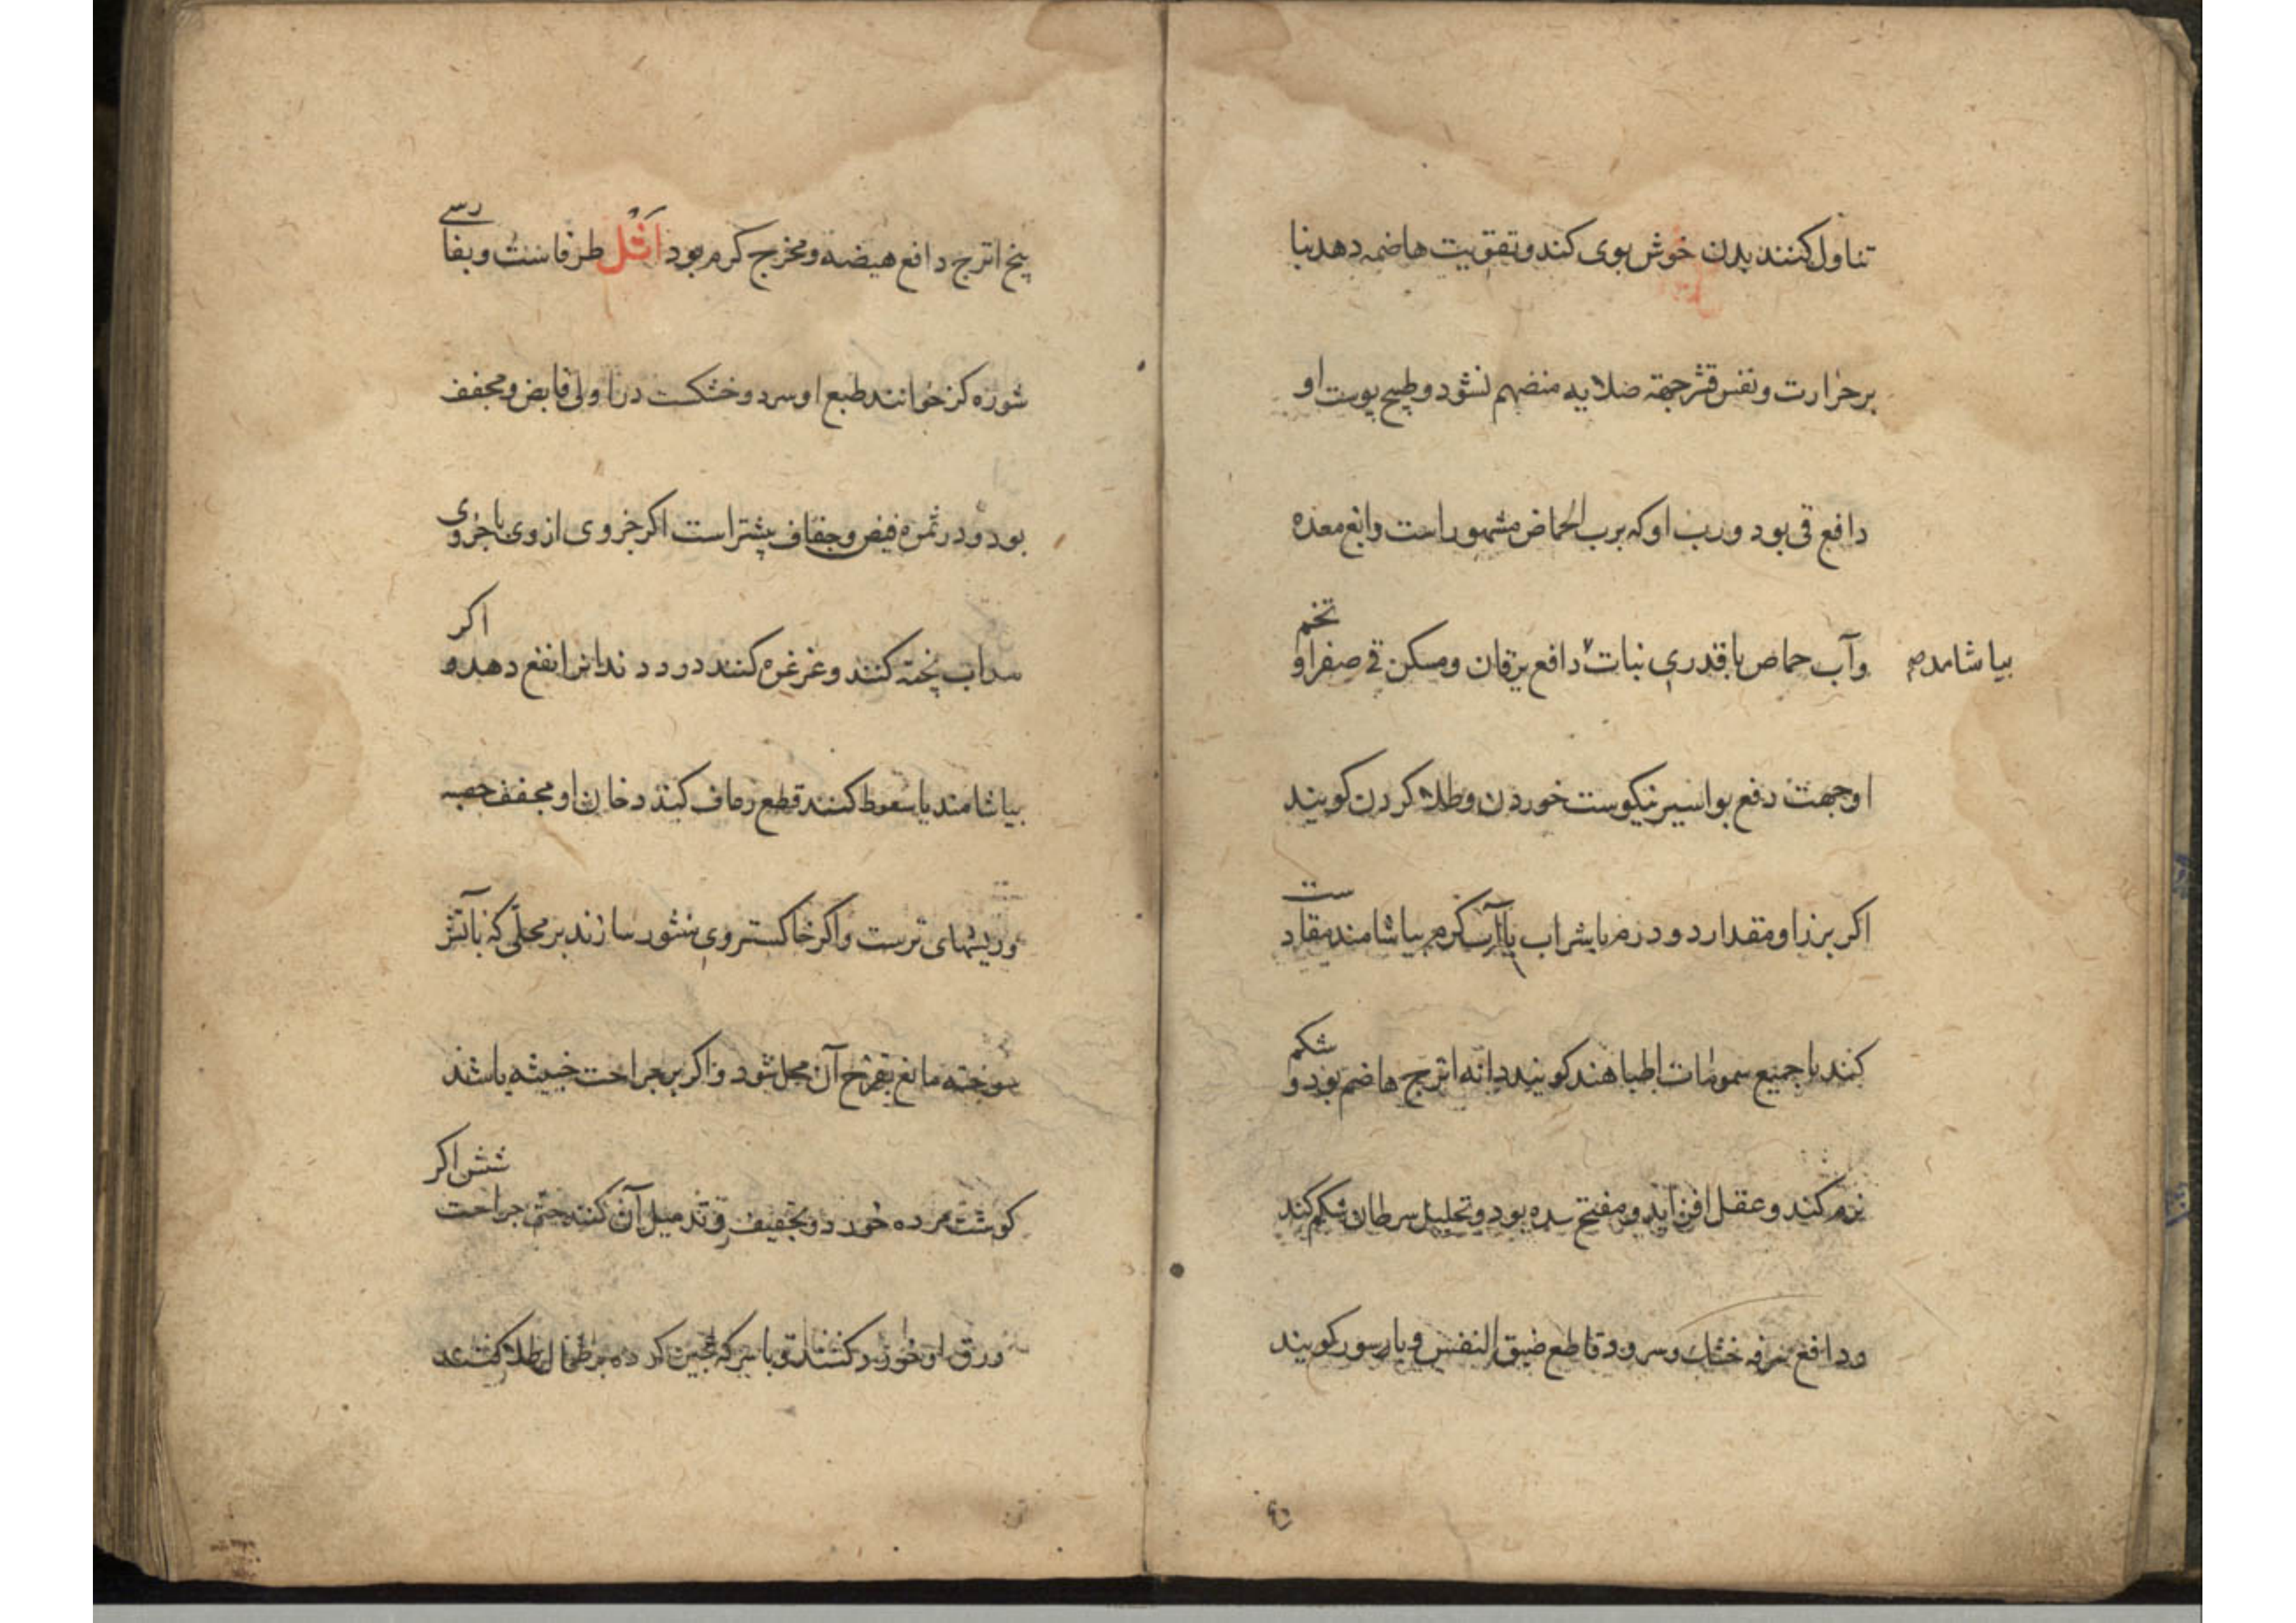 تناول کنند بدن خوش بوی کند و تقویت هاضمه دهد بنا
بر حرارت و نفس قشر جهة صلابه منضهم نشود و طبیح پوست او
دافع قی بود و رب او که برب الحماض مشهور است دابغ معده
وآب حماض با قدری نبات دافع یرقان ومسکن قی صفرا و تخم
بیاشامد صح
او جهت دفع بواسیر نیکوست خوردن و طلا کردن کویند
اکر بزر او مقدار دو درم با شراب یا آب کرم بیاشامند مقاد ست
کند با جمیع سمومات اطبا هند کویند دانه اترج هاضم بود و شکم
نرم کند و عقل افزاید و مفتح سده بود و تحلیل سرطان شکم کند
ودافع سرفه خشک وسرود وقاطع ضیق النفس و کویند
بیخ اترج دافع هیضه و مخرج کرم بود اَثْل طرفاست و بفا رسی
شوره کز خوانند طبع او سرد و خشکست در اولی قابض و مجفف
بود و در ثمره قبض و جفاف بیشتر است اکر جزوی از وی با جزوی
سداب پخته کنند و غرغره کنند درد دندانرا نفع دهد و اکر
بیاشامند یا سعوط کنند قطع رعاف کند دخان او مجفف حصبه
وریشهای ترست واکر خاکستر وی منثور سازند بر محلی که بآتش
سوخته مانع تقرح آن محل شود و اکر بر جراحت خبیثه باشند
کوشت مرده خورد و تجفیف و تدمیل آن کند حتی جراحت شش اکر
ورق او خورد کنند و با سرکه عجین کرده بر طحال طلا کنند